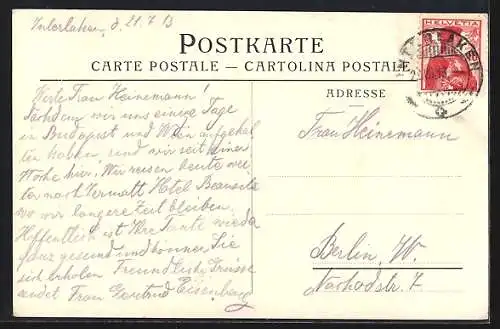 Interlaken, d. 21.7.13
POSTKARTE
CARTE POSTALE — CARTOLINA POSTALE
HELVETIA
INTERLAKEN
ADRESSE
Werte Frau Heinemann!
Nachdem wir uns einige Tage
in Budapest und Wien aufgehal
ten haben, sind wir seit einer
Woche hier. Wir reisen heute wei
ter nach Zermatt Hotel Beausite
wo wir längere Zeit bleiben.
Hoffentlich ist Ihre Tante wieder
ganz gesund und können Sie
sich erholen Freundliche Grüsse
sendet Frau Gertrud Eisenberg
Frau Heinemann
Berlin, W.
Nachodstr. 7